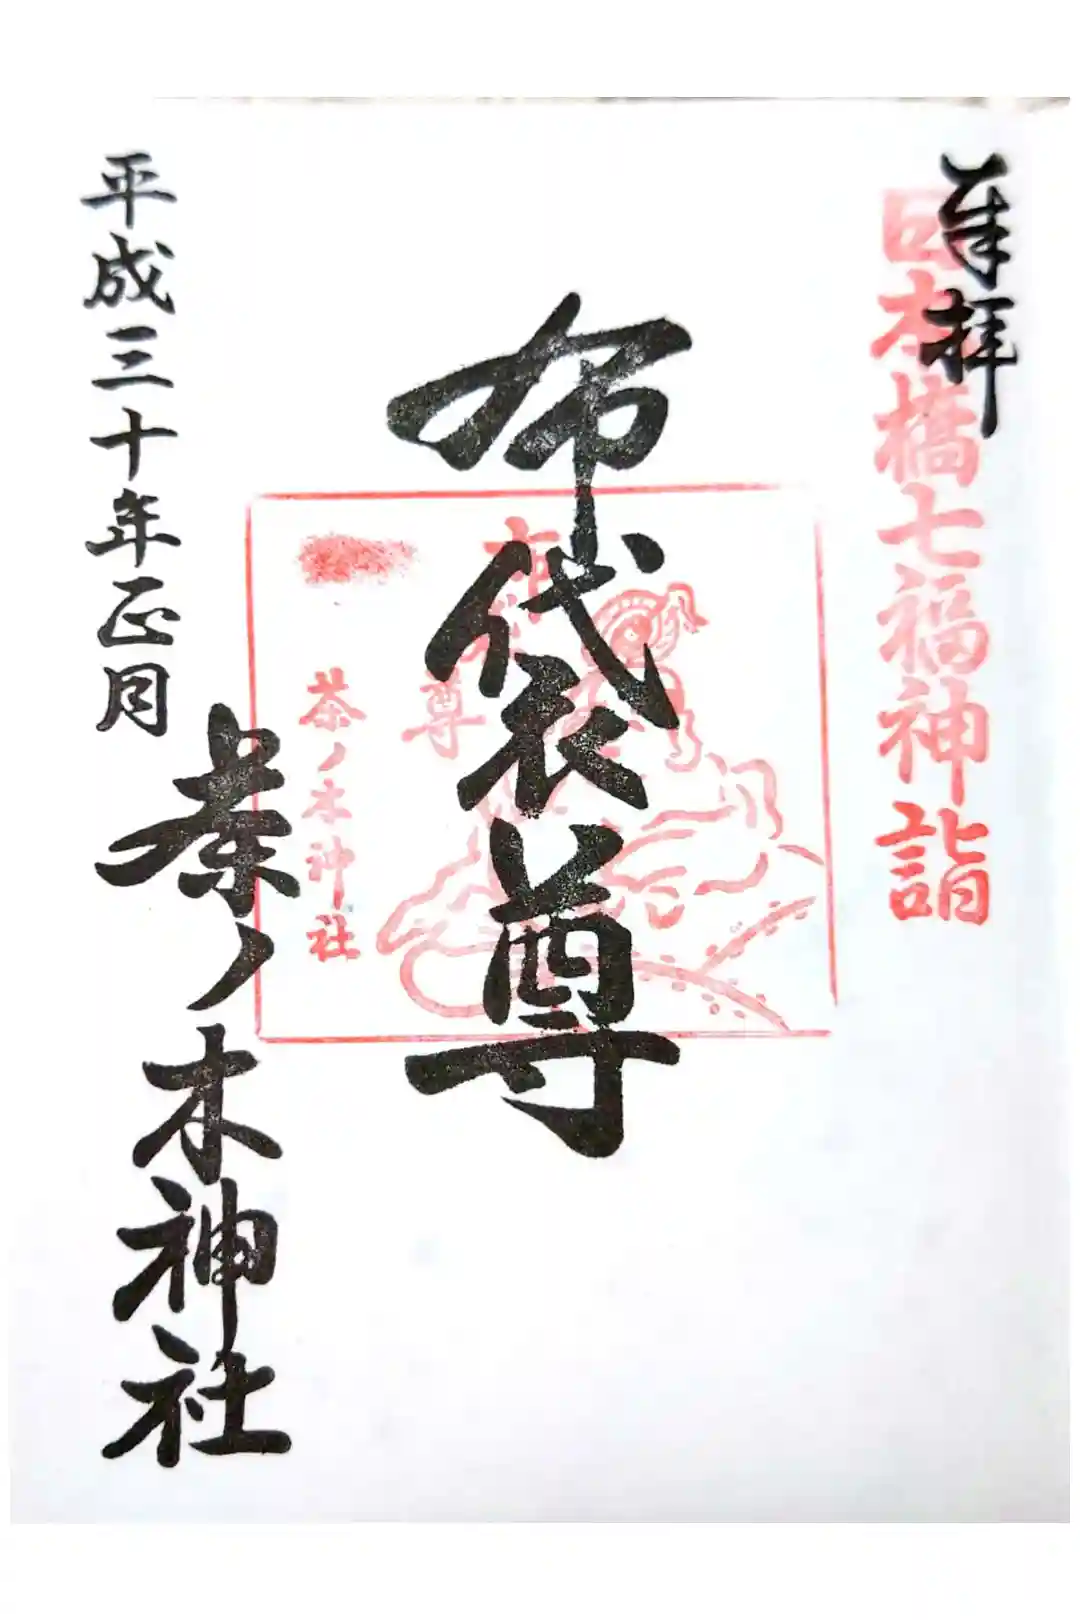 奉拝
日本橋七福神詣
布袋尊
布袋尊
茶ノ木神社
茶ノ木神社
平成三十年正月